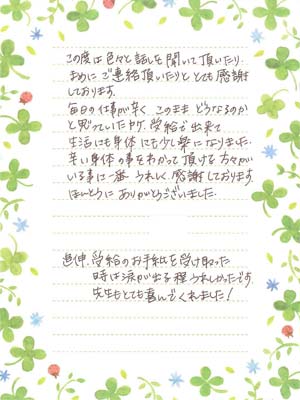 この度は色々と話しを聞いて頂いたり、
まめにご連絡頂いたりと とても感謝
しております。
毎日の仕事が辛く このまま どうなるのか
と思っていた中で、受給出来て
生活にも身体にも少し楽になりました。
辛い身体の事をわかって頂ける方々が
いる事に一番 うれしく、感謝しております。
ほんとうに ありがとうございました。
追伸、受給のお手紙を受け取った
時は涙が出る程 うれしかったです。
先生もとても喜んでくれました!